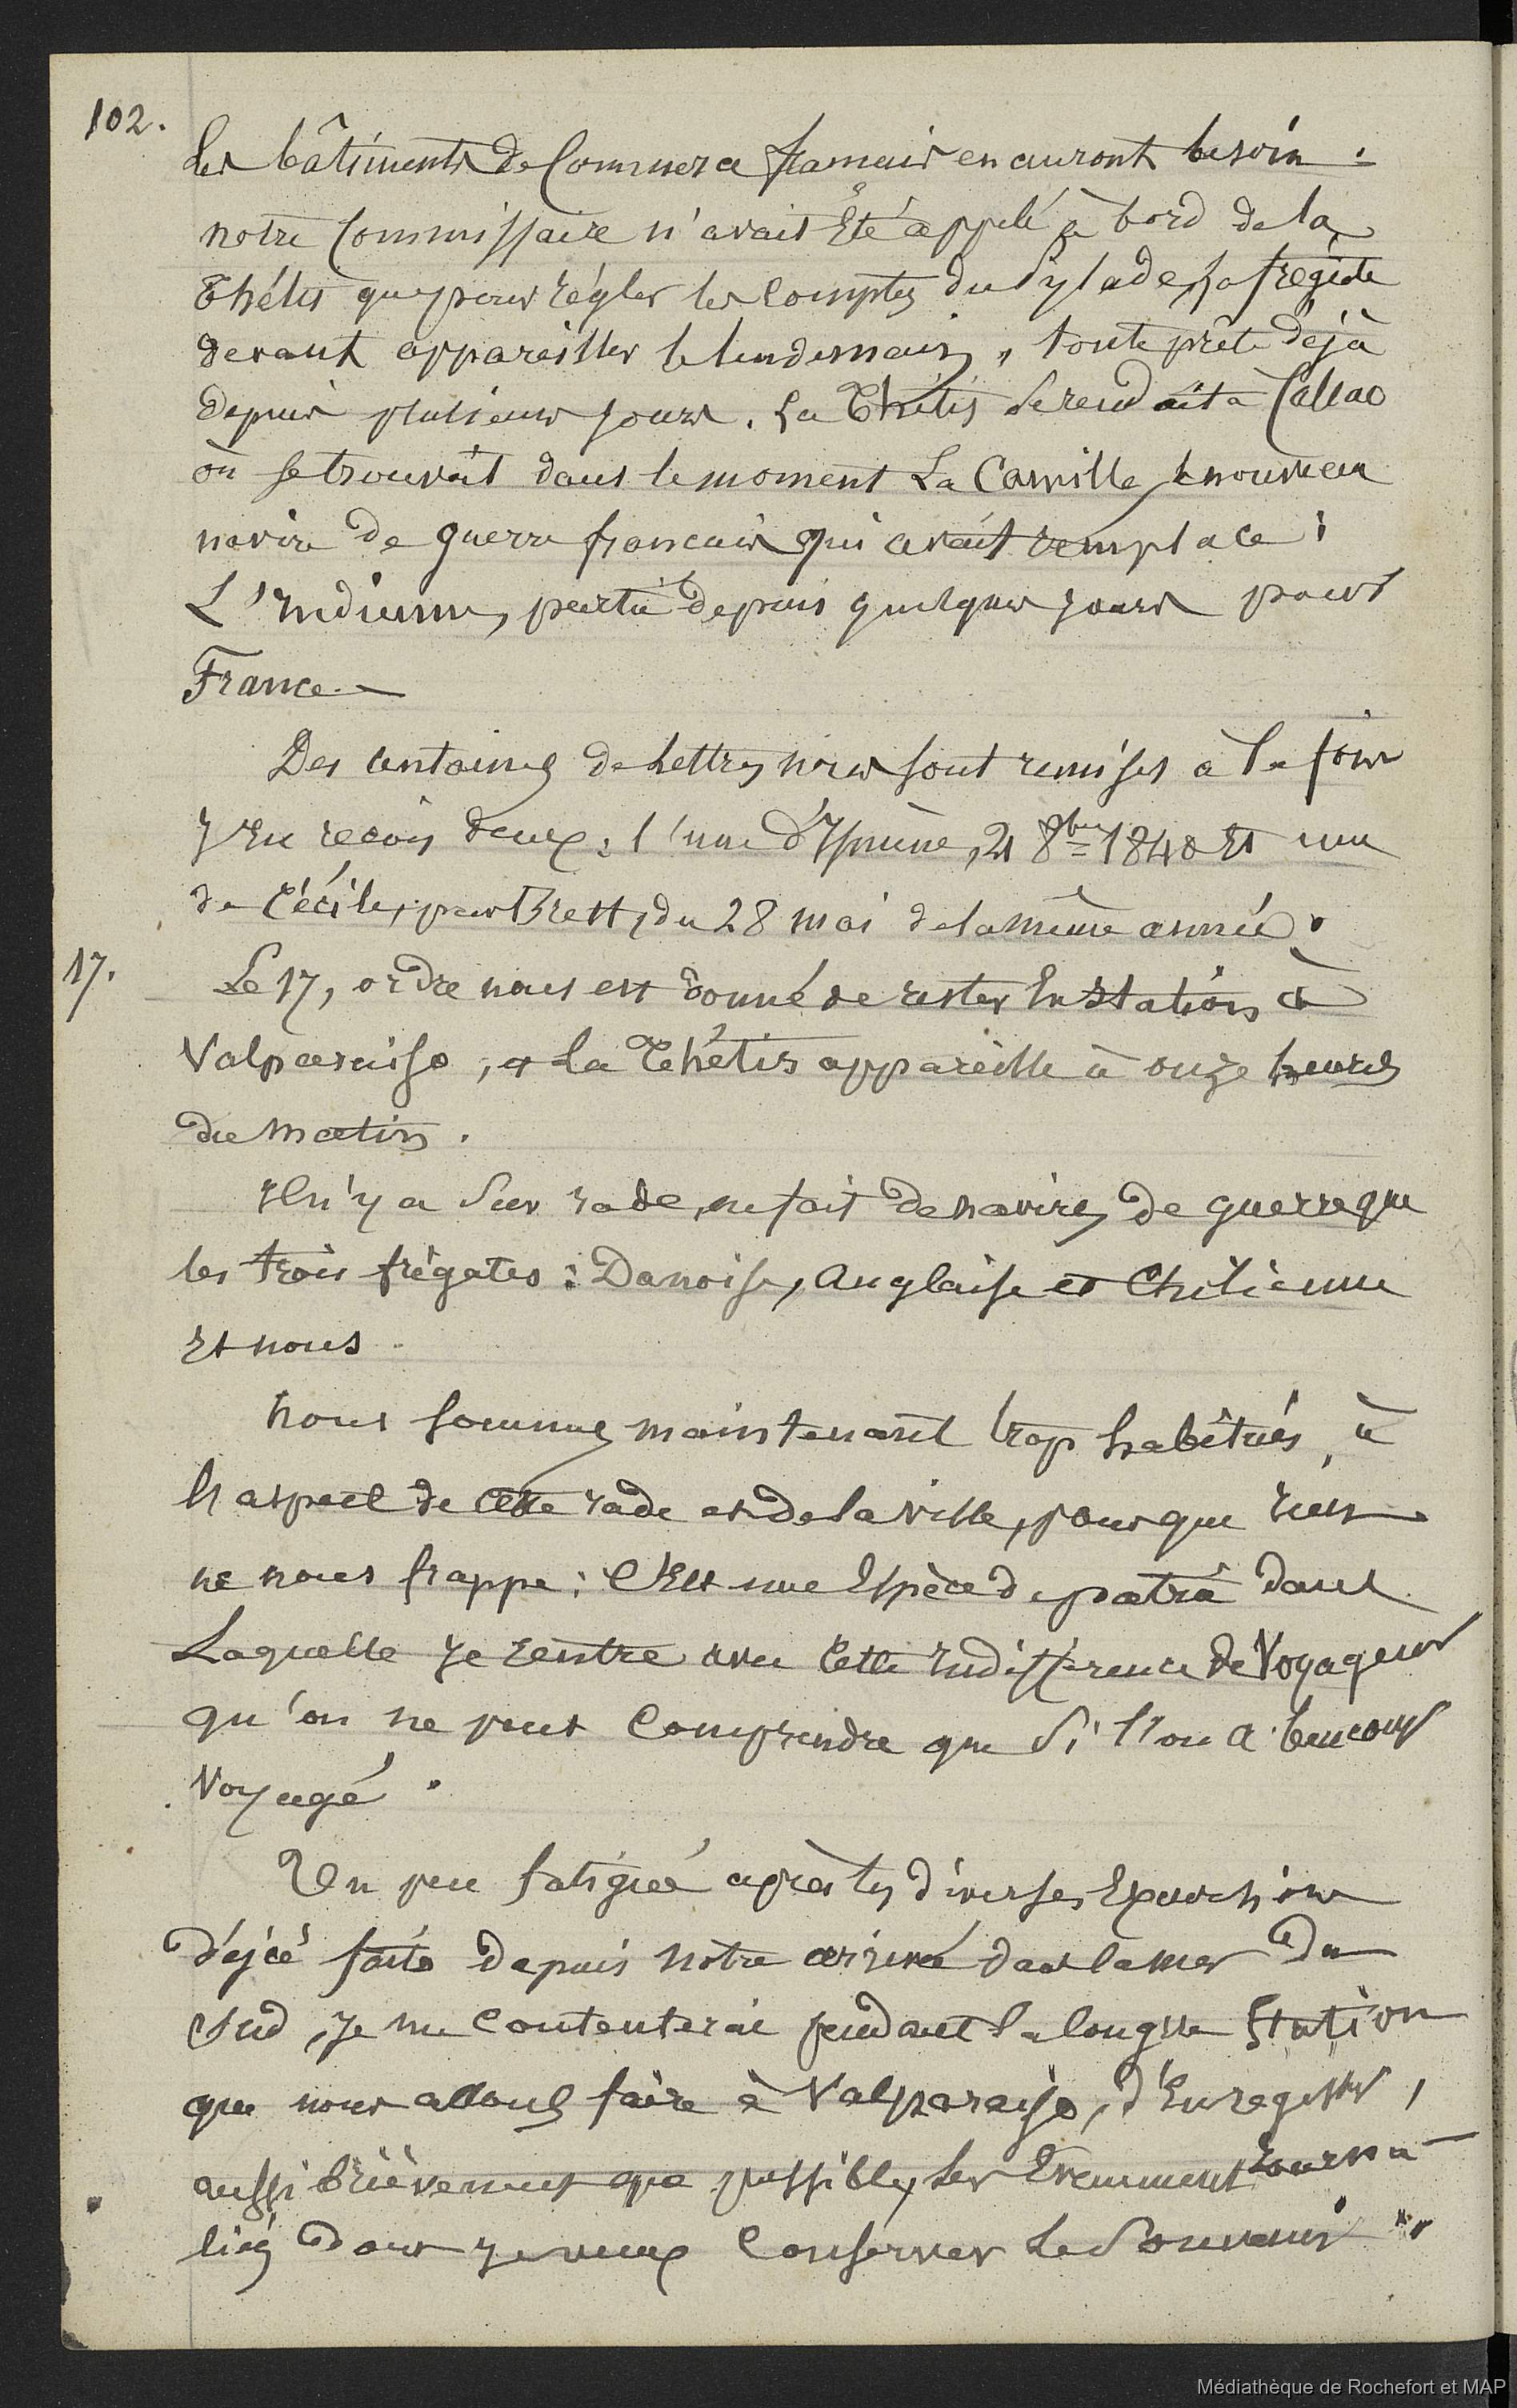 102.
Les bâtiments de Commerce jamais en auront besoin.
notre Commissaire n'avait été appelé à bord de la
Thétis que pour régler les Comptes du Pylade, la frégate
devant appareiller le lendemain, toute prête déjà
depuis plusieurs jours. La Thétis se rendait à Callao
où se trouvait dans le moment La Camille, le nouveau
navire de guerre français qui avait remplacé
L'Indienne, partie depuis quelques jours pour
France.—
Des centaines de lettres nous sont remises à la fois
J'En reçois deux: l'une d'Ismène, 21 8bre 1840 Et une
de Cécile, par Brest, du 28 mai de la même année.
17.
Le 17, ordre nous est donné de rester En Station à
Valparaiso, et La Thétis appareille à onze heures
du matin.
Il n'y a Sur rade, en fait de navires de guerre que
les trois frégates: Danoise, Anglaise et Chilienne
Et nous.
Nous sommes maintenant trop habitués à
l'aspect de cette rade et de la ville, pour que rien
ne nous frappe: C'Est une Espèce de patrie dans
Laquelle je rentre avec Cette Indifférence de Voyageur
qu'on ne peut Comprendre que Si l'on a beaucoup
Voyagé.
Un peu fatigué après les diverses Excursions
déjà faites depuis notre arrivée dans la mer du
Sud, je me Contenterai pendant la longue Station
que nous allons faire à Valparaiso, d'Enregistrer,
aussi brièvement que possible, les Evènements journa-
liers dont je veux Conserver le Souvenir.
Médiathèque de Rochefort et MAP